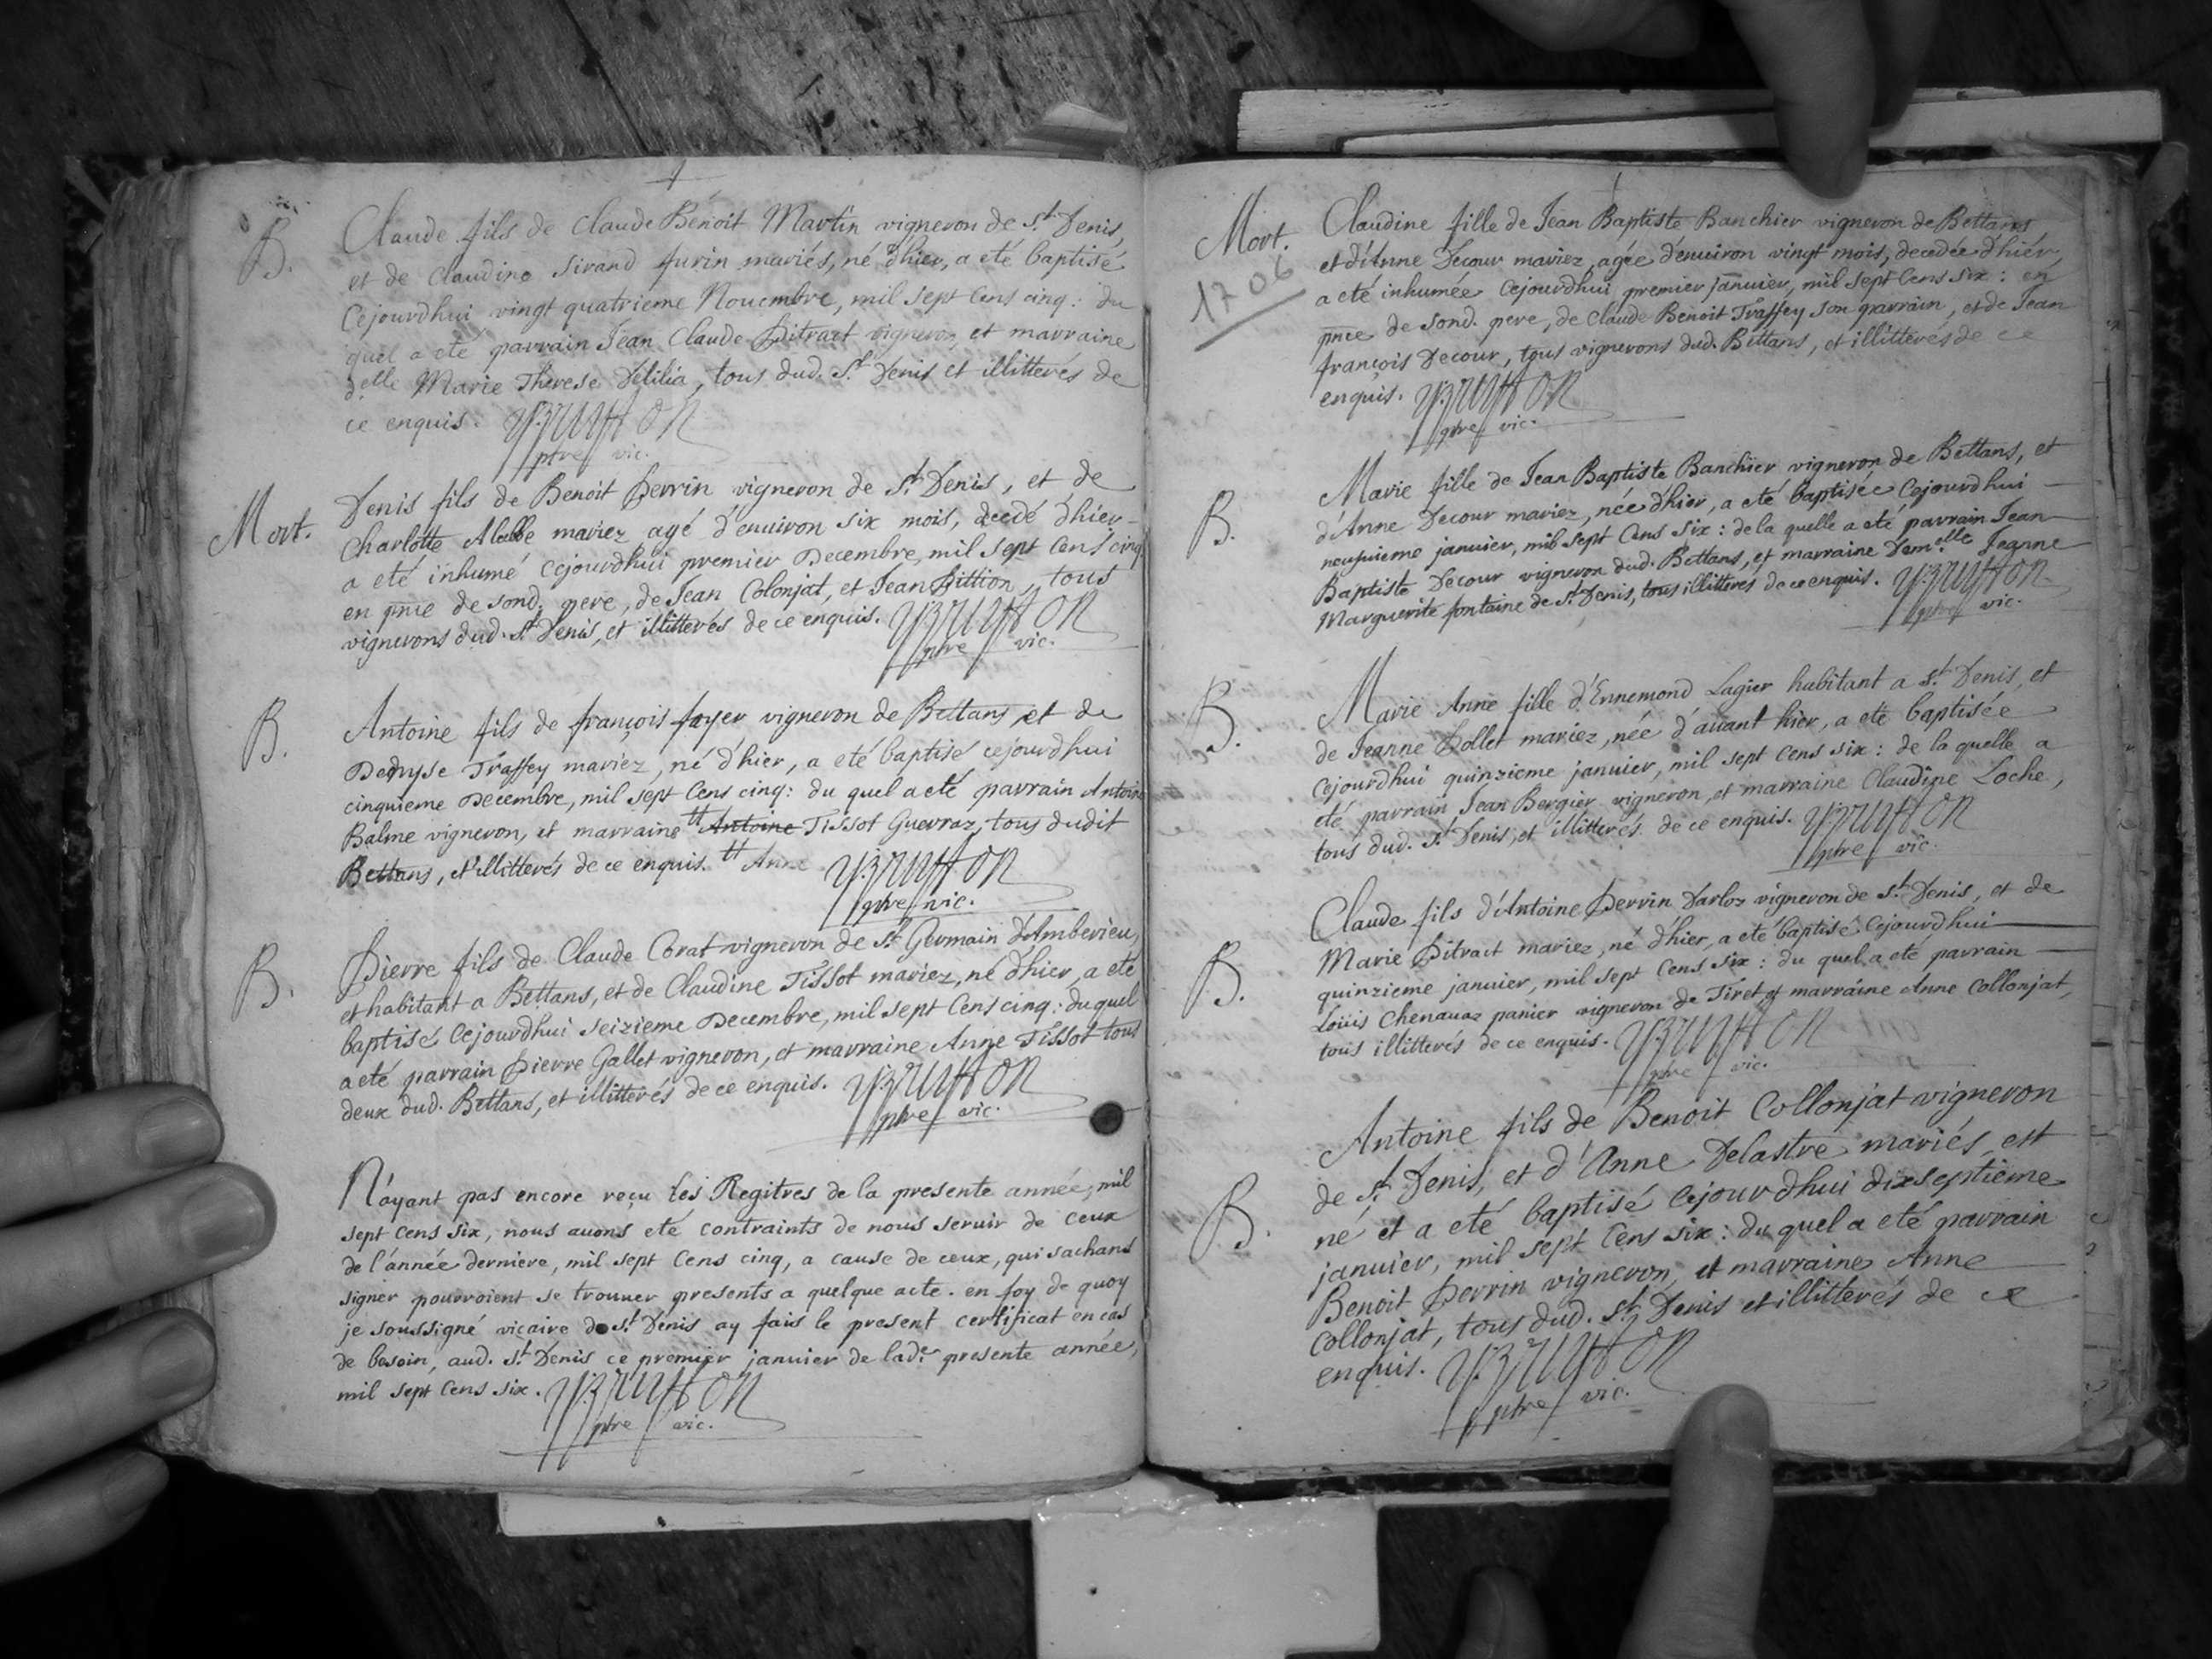 B.
Claude fils de Claude Benoit Martin vigneron de St Denis,
et de Claudine Sirand furin mariés, né d'hier, a eté baptisé
Cejourdhui vingt quatrieme Novembre, mil sept Cens cinq: du
quel a eté parrain Jean Claude Pitract vigneron, et marraine
Delle Marie Therese Delilia, tous dud. St Denis et illitterés de
ce enquis.
ptre vic.
Mort.
Denis fils de Benoit Perrin vigneron de St Denis, et de
Charlotte mariez agé d'enuiron six mois, decedé d'hier
a eté inhumé Cejourdhui premier Decembre, mil sept Cens cinq
en pnce de sond. pere, de Jean Colonjat, et Jean Bittion, tous
vignerons dud. St Denis, et illitterés de ce enquis.
ptre vic.
B.
Antoine fils de françois foyer vigneron de Bettans, et de
Denyse Traffey mariez, né d'hier, a eté baptisé cejourdhui
cinquieme Decembre, mil sept Cens cinq: du quel a eté parrain Antoine
Balme vigneron, et marraine tt Antoine Tissot Guerraz, tous dudit
Bettans, et illitterés de ce enquis. tt Anne
ptre vic.
B.
Pierre fils de Claude Corat vigneron de St Germain d'Amberieu,
et habitant a Bettans, et de Claudine Tissot mariez, né d'hier, a eté
baptisé Cejourdhui seizieme Decembre, mil sept Cens cinq: duquel
a eté parrain Pierre Gallet vigneron, et marraine Anne Tissot tous
deux dud. Bettans, et illitterés de ce enquis.
ptre vic.
N'ayant pas encore reçu les Regitres de la presente année, mil
sept Cens six, nous auons eté contraints de nous seruir de ceux
de l'année derniere, mil sept Cens cinq, a cause de ceux, qui sachans
signer pourroient se trouuer presents a quelque acte. en foy de quoy
je soussigné vicaire de St Denis ay fais le present certificat en cas
de besoin, aud. St Denis ce premier januier de lade presente année,
mil sept Cens six.
ptre vic.
Mort.
1706
Claudine fille de Jean Baptiste Banchier vigneron de Bettans,
et d'Anne Decour mariez, agée d'enuiron vingt mois, decedée d'hier,
a eté inhumée Cejourdhui premier januier, mil sept Cens six: en
pnce de sond. pere, de Claude Benoit Traffey son parrain, et de Jean
françois Decour, tous vignerons dud. Bettans, et illitterés de ce
enquis.
ptre vic.
B.
Marie fille de Jean Baptiste Banchier vigneron de Bettans, et
d'Anne Decour mariez, née d'hier, a eté baptisée Cejourdhui
neufuieme januier, mil sept Cens six: de la quelle a eté parrain Jean
Baptiste Decour vigneron dud. Bettans, et marraine Demelle Jeanne
Marguerite fontaine de St Denis, tous illitterés de ce enquis.
ptre vic.
B.
Marie Anne fille d'Ennemond Lagier habitant a St Denis, et
de Jeanne Pollet mariez, née d'auant hier, a eté baptisée
Cejourdhui quinzieme januier, mil sept Cens six: de la quelle a
eté parrain Jean Bergier vigneron, et marraine Claudine Loche,
tous dud. St Denis, et illitterés de ce enquis.
ptre vic.
B.
Claude fils d'Antoine Perrin Darloz vigneron de St Denis, et de
Marie Pitract mariez, né d'hier, a eté baptisé Cejourdhui
quinzieme januier, mil sept Cens six: du quel a eté parrain
Loüis Chenauaz panier vigneron de Tiret, et marraine Anne Collonjat,
tous illitterés de ce enquis.
ptre vic.
B.
Antoine fils de Benoit Collonjat vigneron
de St Denis, et d'Anne Delastre mariés, est
né et a eté baptisé Cejourdhui dixseptieme
januier, mil sept Cens six: du quel a eté parrain
Benoit Perrin vigneron, et marraine Anne
Collonjat, tous dud. St Denis et illitterés de ce
enquis.
ptre vic.